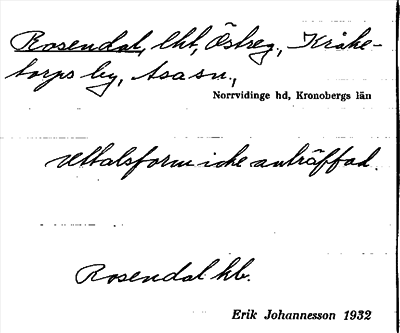 Rosendal, lht, Östreg., Kråke-
torps by, Asa sn.,
Norrvidinge hd, Kronobergs län
uttalsform icke anträffad.
Rosendal kb.
Erik Johannesson 1932